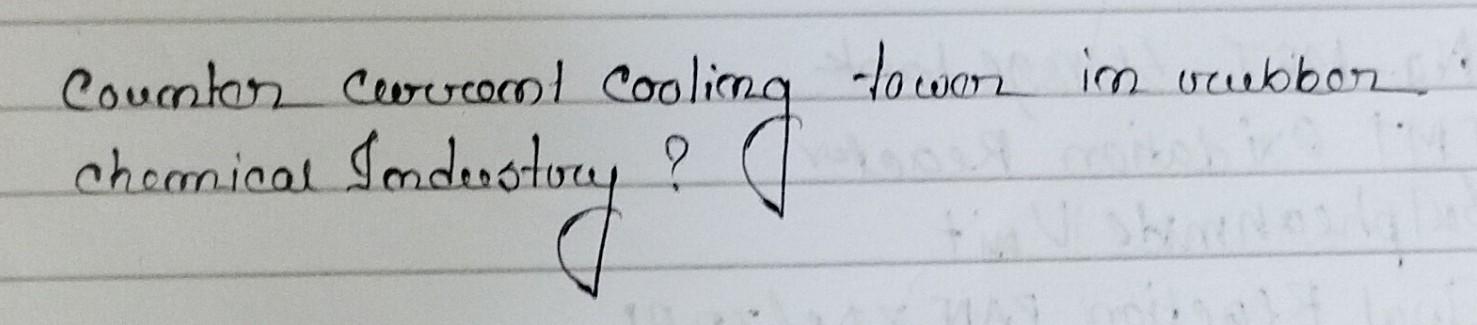 Counter current cooling tower in rubber
chemical Industry ?